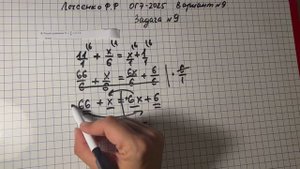 Лысенко Ф.Ф ОГЭ-2025 Вариант №9
Задача №9
11/1 \6 + x/6 \1 = x/1 \6 + 1/1 \6
66/6 + x/6 = 6x/6 + 6/6 | · 6/1
66 + x = 6x + 6